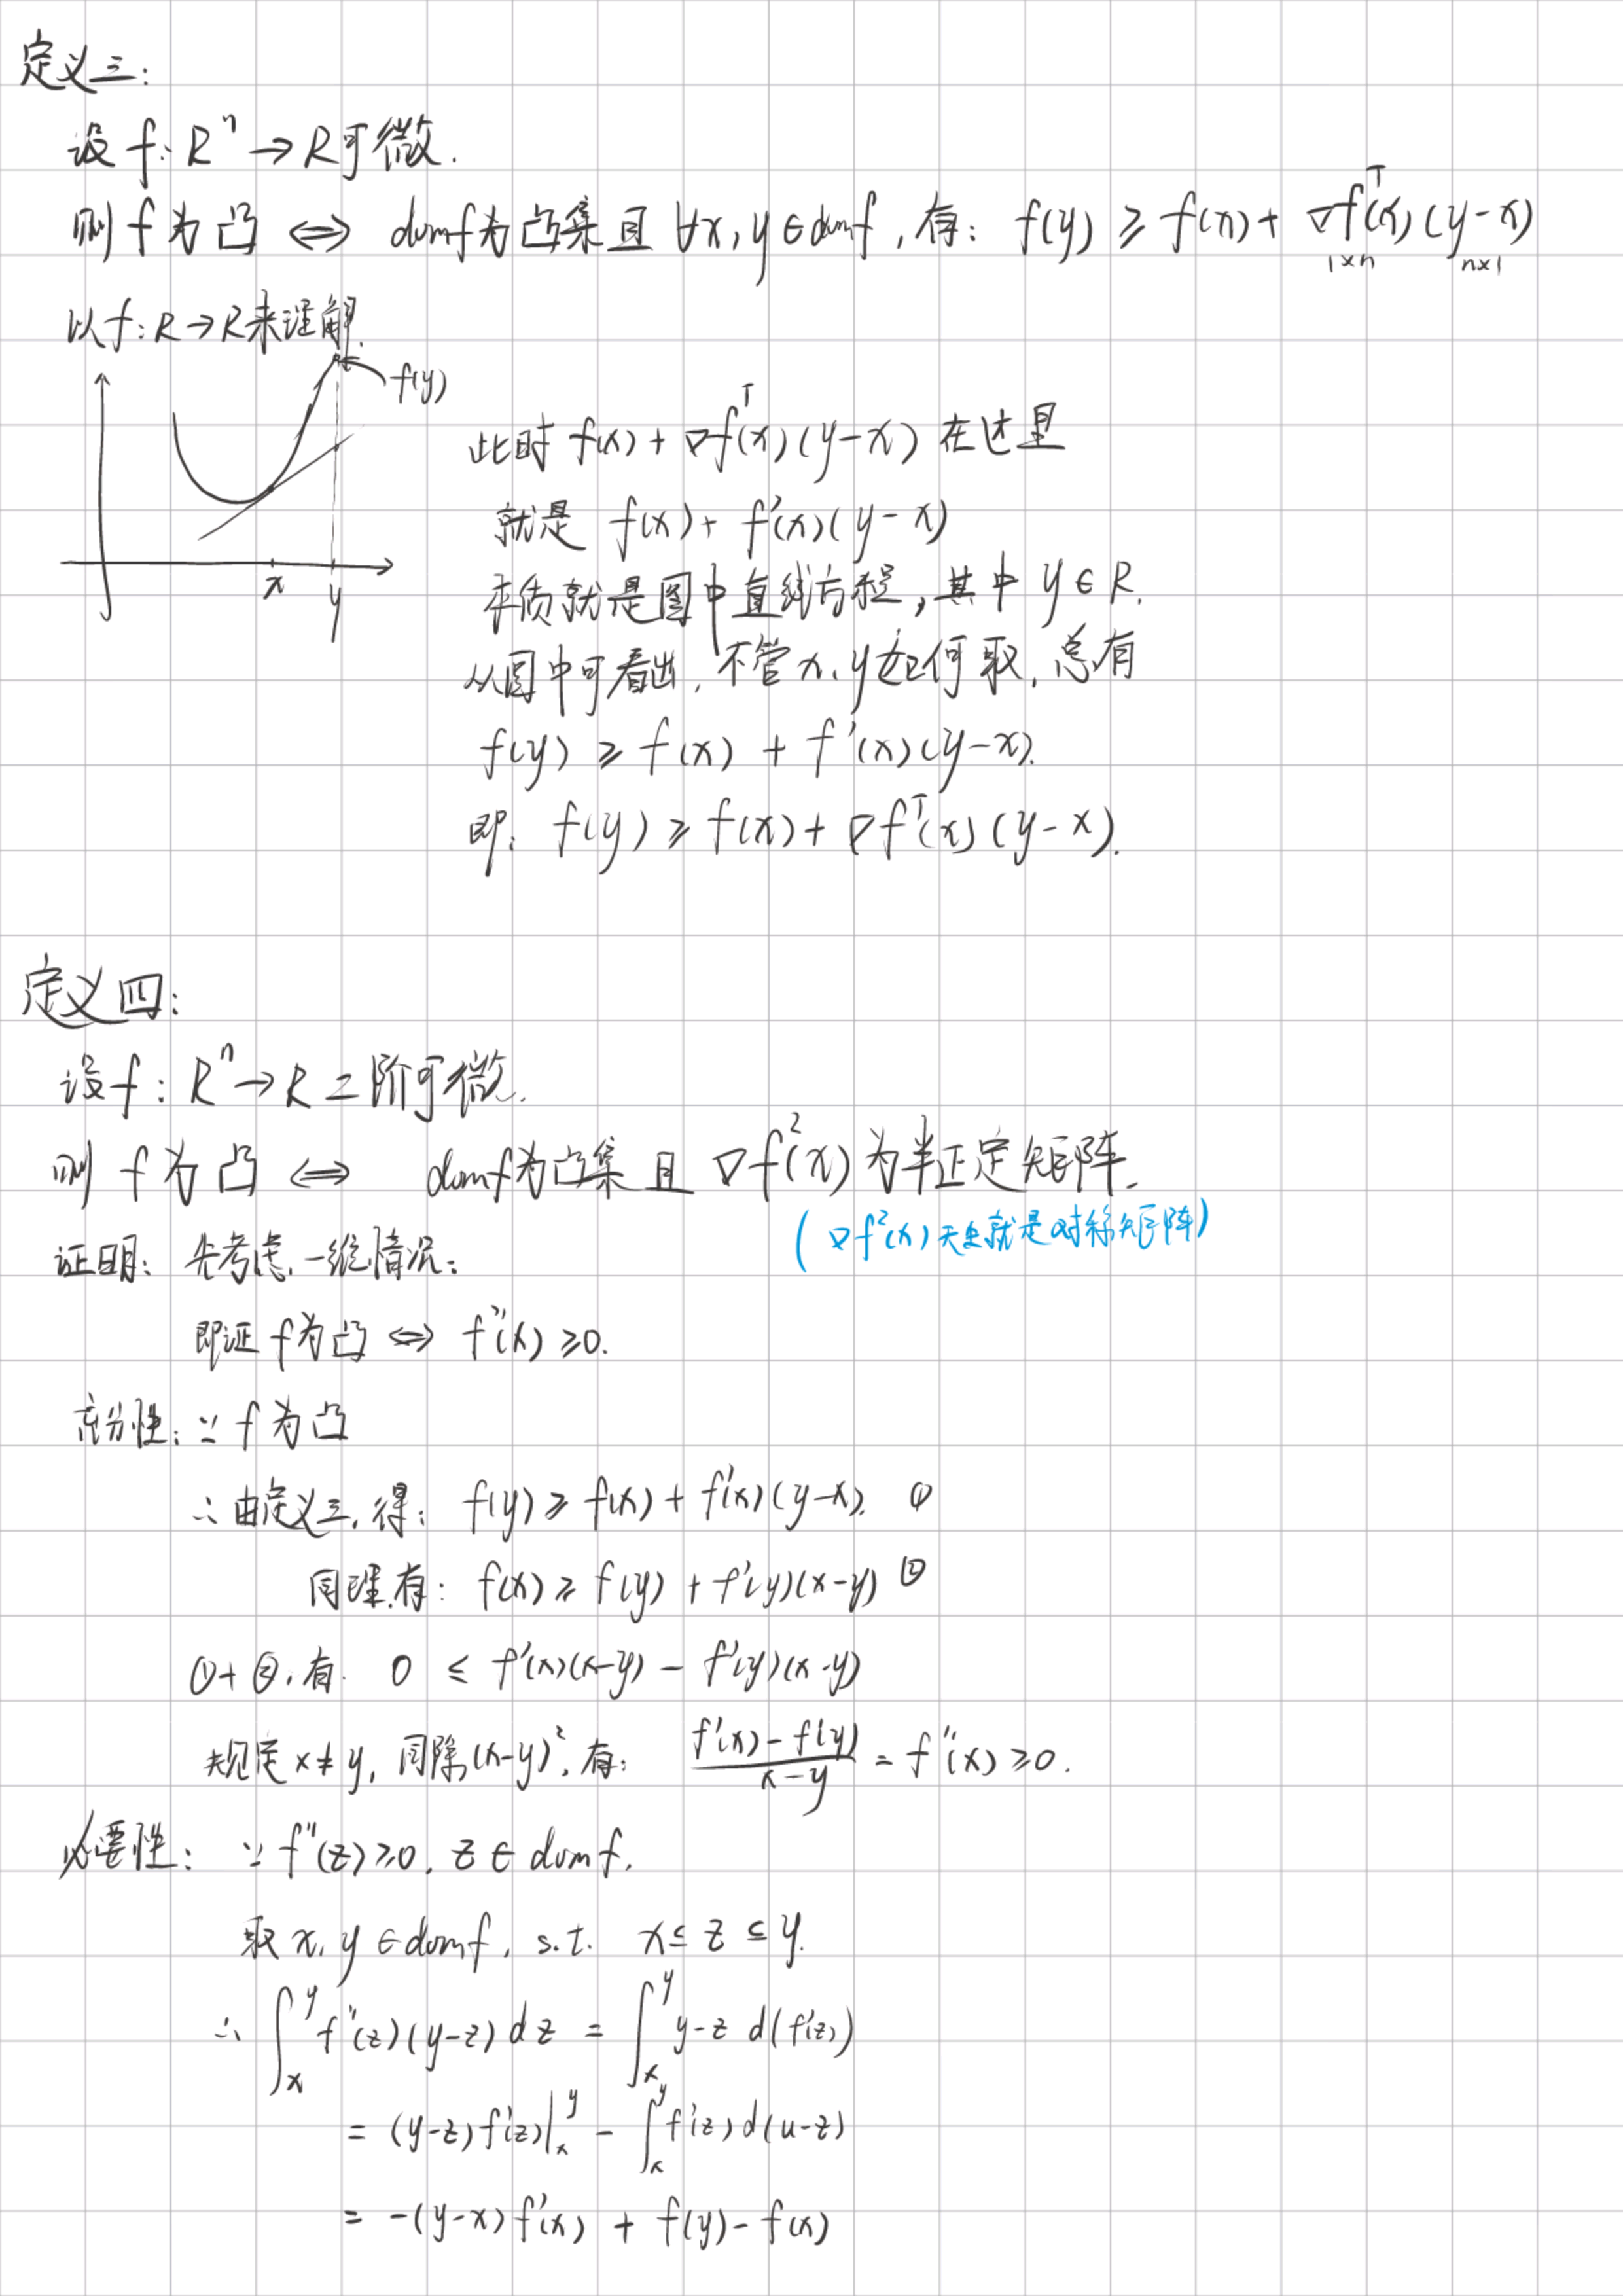 定义三:
设 f: Rⁿ → R 可微.
则 f 为凸 ⇔ domf 为凸集且 ∀x, y ∈ domf, 有: f(y) ≥ f(x) + ∇fᵀ(x) (y-x)
1×n n×1
以 f: R → R 来理解.
f(y)
x
y
此时 f(x) + ∇fᵀ(x) (y-x) 在这里
就是 f(x) + f'(x) (y-x)
本质就是图中直线方程, 其中 y ∈ R.
从图中可看出, 不管 x, y 如何取, 总有
f(y) ≥ f(x) + f'(x) (y-x).
即: f(y) ≥ f(x) + ∇fᵀ(x) (y-x).
定义四:
设 f: Rⁿ → R 二阶可微.
则 f 为凸 ⇔ domf 为凸集 且 ∇f²(x) 为半正定矩阵.
(∇f²(x) 天生就是对称矩阵)
证明: 先考虑一维情况:
即证 f 为凸 ⇔ f''(x) ≥ 0.
充分性: ∵ f 为凸
∴ 由定义三, 得: f(y) ≥ f(x) + f'(x) (y-x). ①
同理, 有: f(x) ≥ f(y) + f'(y)(x-y) ②
①+②, 有. 0 ≤ f'(x)(x-y) - f'(y)(x-y)
规定 x≠y, 同除 (x-y)², 有: (f'(x) - f'(y))/(x-y) = f''(x) ≥ 0.
必要性: ∵ f''(z) ≥ 0, z ∈ domf.
取 x, y ∈ domf, s.t. x ≤ z ≤ y.
∴ ∫ₓʸ f''(z) (y-z) dz = ∫ₓʸ y-z d(f'(z))
= (y-z) f'(z)|ₓʸ - ∫ₓʸ f'(z) d(u-z)
= -(y-x) f'(x) + f(y) - f(x)